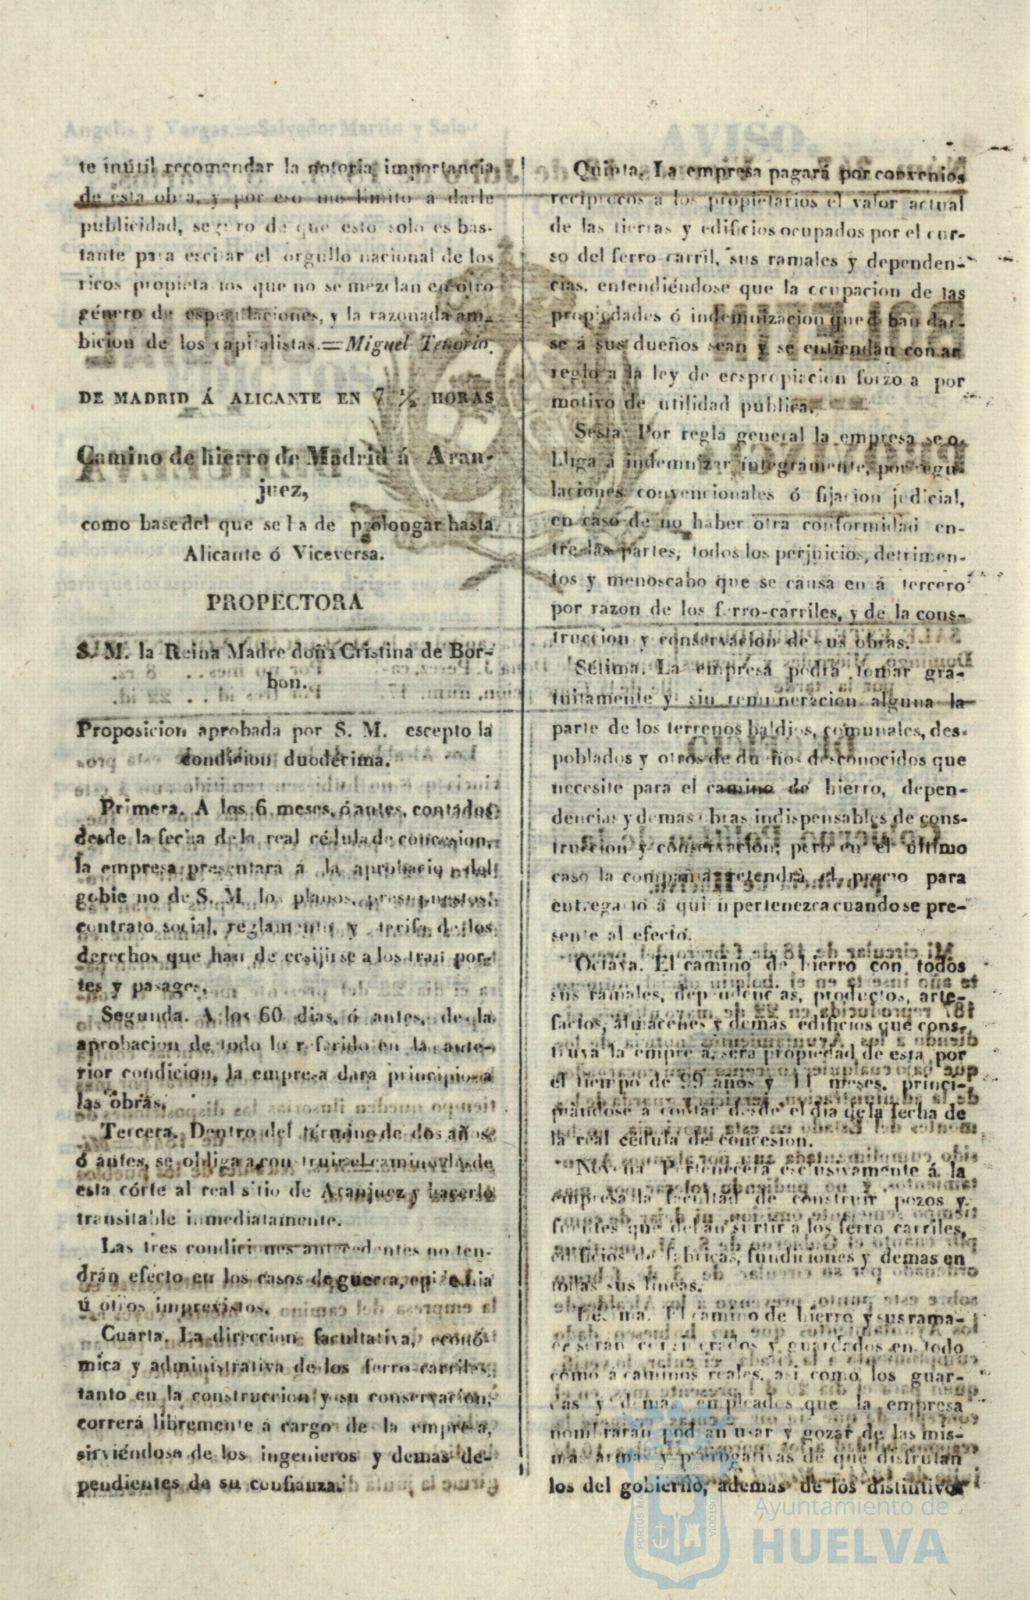 te inútil recomendar la notoria importancia
de esta obra, y por eso me limito a darle
publicidad, seguro de que esto solo es bas-
tante para escitar el orgullo nacional de los
ricos propietarios que no se mezclan en otro
género de especulaciones, y la razonada am-
bicion de los capitalistas.=Miguel Tenorio.
DE MADRID Á ALICANTE EN 7 ½ HORAS
Camino de hierro de Madrid á Aran-
juez,
como base del que se ha de prolongar hasta
Alicante ó Viceversa.
PROPECTORA
S. M. la Reina Madre doña Cristina de Bor-
bon.
Proposicion aprobada por S. M. escepto la
condicion duodécima.
Primera. A los 6 meses, ó antes, contados
desde la fecha de la real cédula de concesion,
la empresa presentará á la aprobacio del
gobierno de S. M. los planos, presupuestos,
contrato social, reglamento y tarifa de los
derechos que han de ecsijirse a los traspor-
tes y pasages.
Segunda. A los 60 dias, ó antes, de la
aprobacion de todo lo referido en la ante-
rior condicion, la empresa dara principio a
las obras.
Tercera. Dentro del término de dos años
ó antes, se obliga a construir el camino desde
esta córte al real sitio de Aranjuez y hacerlo
transitable inmediatamente.
Las tres condiciones antecedentes no ten-
drán efecto en los casos de guerra, epidemia
ú otros imprevistos.
Cuarta. La direccion facultativa, econó-
mica y administrativa de los ferro carriles,
tanto en la construccion y su conservacion,
correrá libremente á cargo de la empresa,
sirviéndose de los ingenieros y demas de-
pendientes de su confianza.
Quinta. La empresa pagará por convenios
recíprocos a los propietarios el valor actual
de las tierras y edificios ocupados por el cur-
so del ferro carril, sus ramales y dependen-
cias, entendiéndose que la ocupacion de las
propiedades ó indemnizacion que ha dar-
se á sus dueños sean y se entiendan con ar
reglo a la ley de ecspropiacion forzosa por
motivo de utilidad publica.
Sesta. Por regla general la empresa se o-
bliga á indemnizar íntegramente, por regu
laciones convencionales ó fijacion judicial,
en caso de no haber otra conformidad en-
tre las partes, todos los perjuicios, detrimen-
tos y menoscabo que se causa en á tercero
por razon de los ferro-carriles, y de la cons-
truccion y conservacion de sus obras.
Sétima. La empresa podrá tomar gra-
tuitamente y sin remuneracion alguna la
parte de los terrenos baldios, comunales, des-
poblados y otros de dueños desconocidos que
necesite para el camino de hierro, depen-
dencias y demas obras indispensables de cons-
truccion y conservacion; pero en el último
caso la compañia retendrá el precio para
entregarlo á quien pertenezca cuando se pre-
sente al efecto.
Octava. El camino de hierro con todos
sus ramales, dependencias, productos, arte-
factos, almacenes y demas edificios que cons-
truya la empresa, sera propiedad de esta por
el tiempo de 99 años y 11 meses, princi-
piándose á contar desde el dia de la fecha de
la real cédula de concesion.
Novena Pertenecerá esclusivamente á la
empresa la facultad de construir pozos y
fuentes que deban surtir a los ferro carriles,
edificios de fabricas, fundiciones y demas en
todas sus líneas.
Decima. El camino de hierro y sus rama-
les serán considerados y guardados en todo
como á caminos reales, asi como los guar-
das y demas empleados que la empresa
nombrarán podran usar y gozar de las mis-
mas armas y prerogativas de que disfrutan
los del gobierno, ademas de los distintivos
Ayuntamiento de
HUELVA